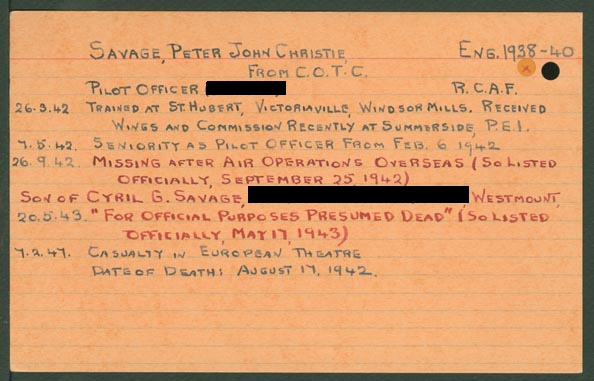 SAVAGE, PETER JOHN CHRISTIE ENG. 1938-40
FROM C.O.T.C.
PILOT OFFICER R.C.A.F.
26.3.42 TRAINED AT ST. HUBERT, VICTORIAVILLE, WINDSOR MILLS. RECEIVED
WINGS AND COMMISSION RECENTLY AT SUMMERSIDE, P.E.I.
7.5.42. SENIORITY AS PILOT OFFICER FROM FEB. 6 1942
26.9.42. MISSING AFTER AIR OPERATIONS OVERSEAS (SO LISTED
OFFICIALLY, SEPTEMBER 25, 1942)
SON OF CYRIL G. SAVAGE, WESTMOUNT,
20.5.43. "FOR OFFICIAL PURPOSES PRESUMED DEAD" (SO LISTED
OFFICIALLY, MAY 17, 1943)
7.2.47. CASUALTY IN EUROPEAN THEATRE
DATE OF DEATH: AUGUST 17, 1942.